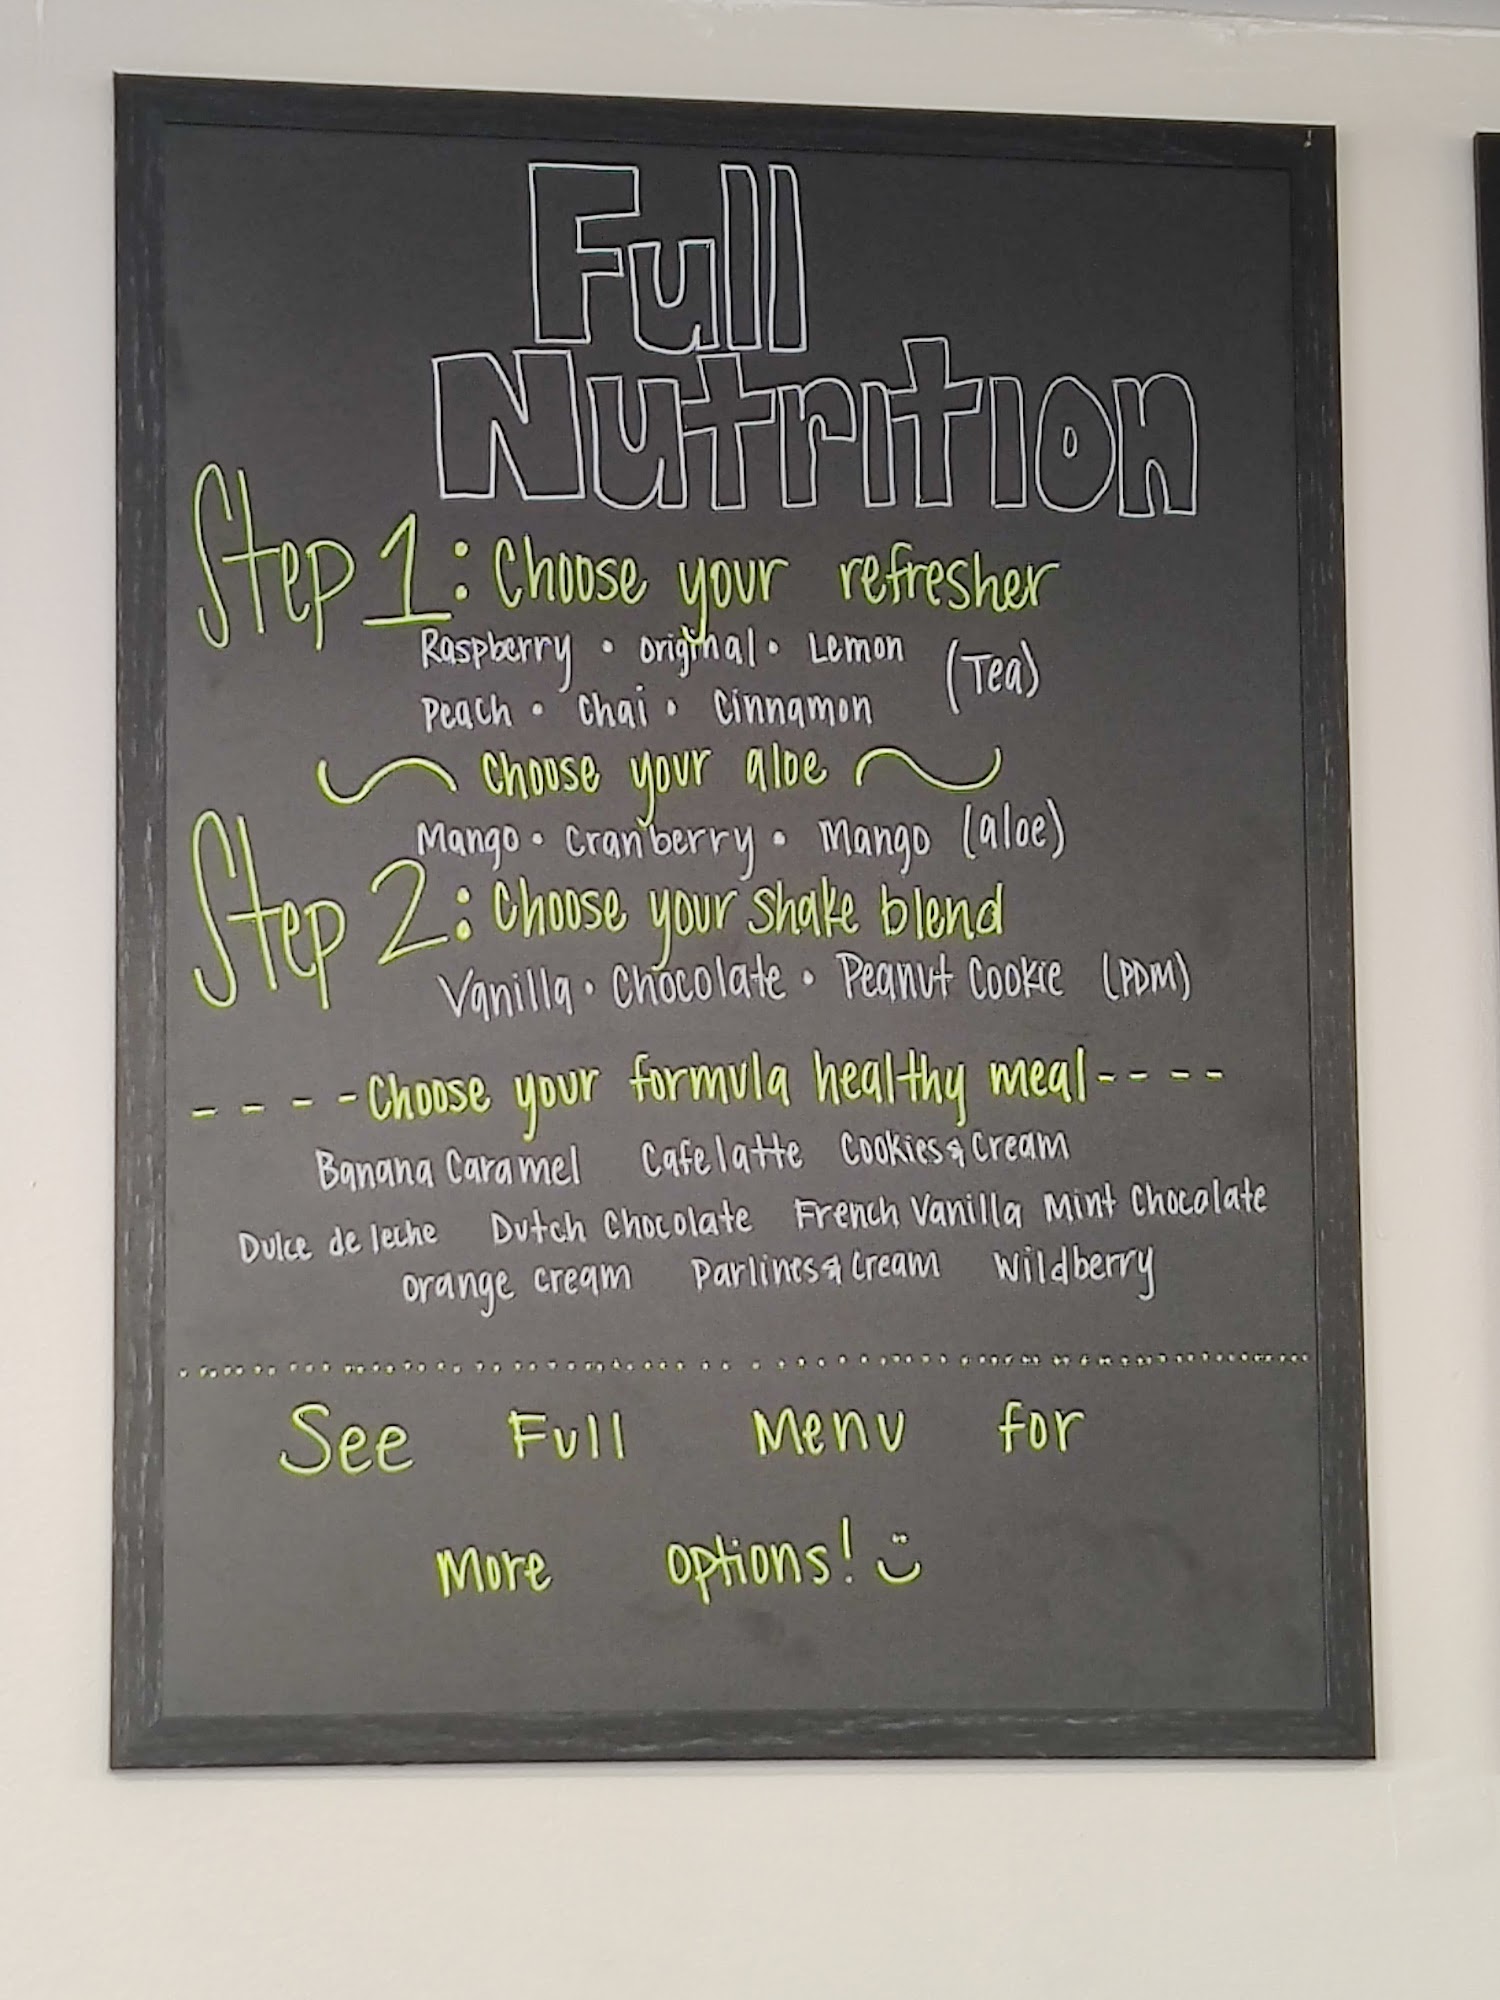 Full
Nutrition
Step 1: Choose your refresher
Raspberry • original • Lemon (Tea)
Peach • Chai • Cinnamon
Choose your aloe
Mango • Cranberry • Mango (aloe)
Step 2: Choose your shake blend
Vanilla • Chocolate • Peanut Cookie (PDM)
- - - - Choose your formula healthy meal - - - -
Banana Caramel Cafe latte Cookies & Cream
Dulce de leche Dutch Chocolate French Vanilla Mint Chocolate
orange cream Parlines & Cream Wildberry
See Full Menu for
More options!